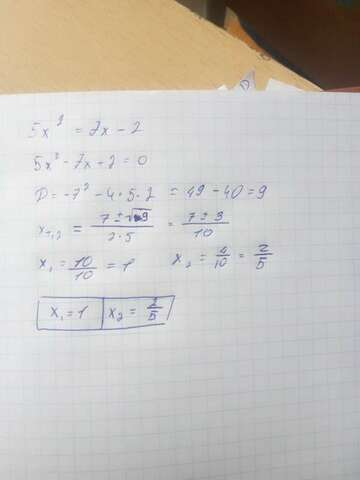 5x² = 7x - 2
5x² - 7x + 2 = 0
D = -7² - 4·5·2 = 49 - 40 = 9
x₁,₂ = (7 ± √9)/(2·5) = (7 ± 3)/10
x₁ = 10/10 = 1 x₂ = 4/10 = 2/5
x₁ = 1 x₂ = 2/5